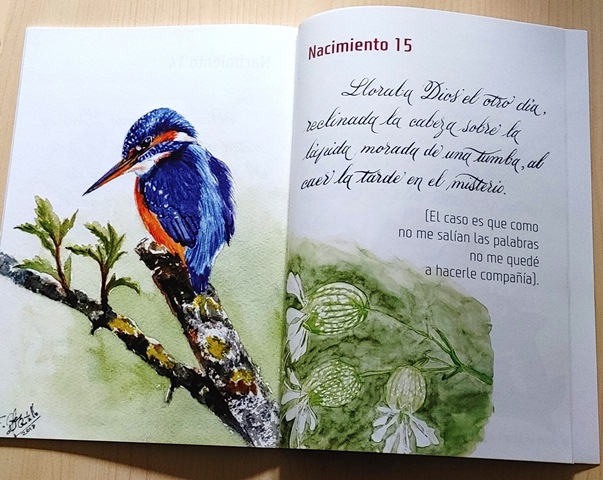 Nacimiento 15
Lloraba Dios el otro día,
reclinada la cabeza sobre la
líquida morada de una tumba, al
caer la tarde en el misterio.
(El caso es que como
no me salían las palabras
no me quedé
a hacerle compañía).